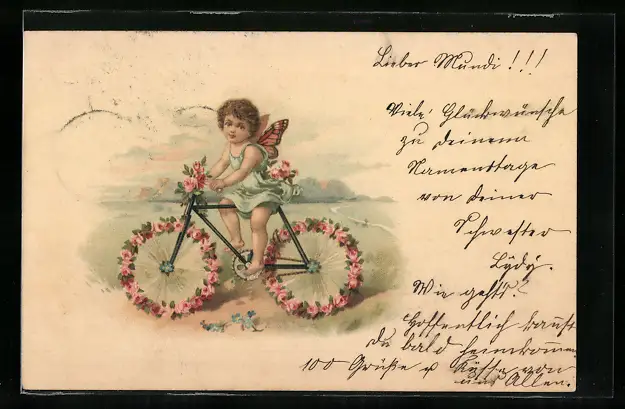 Lieber Mundi!!!
Viele Glückwünsche
zu deinem
Namenstage
von deiner
Schwester
Lydy.
Wie geht's?
Hoffentlich kannst
du bald heimkommen
100 Grüße u Küsse von
uns Allen.